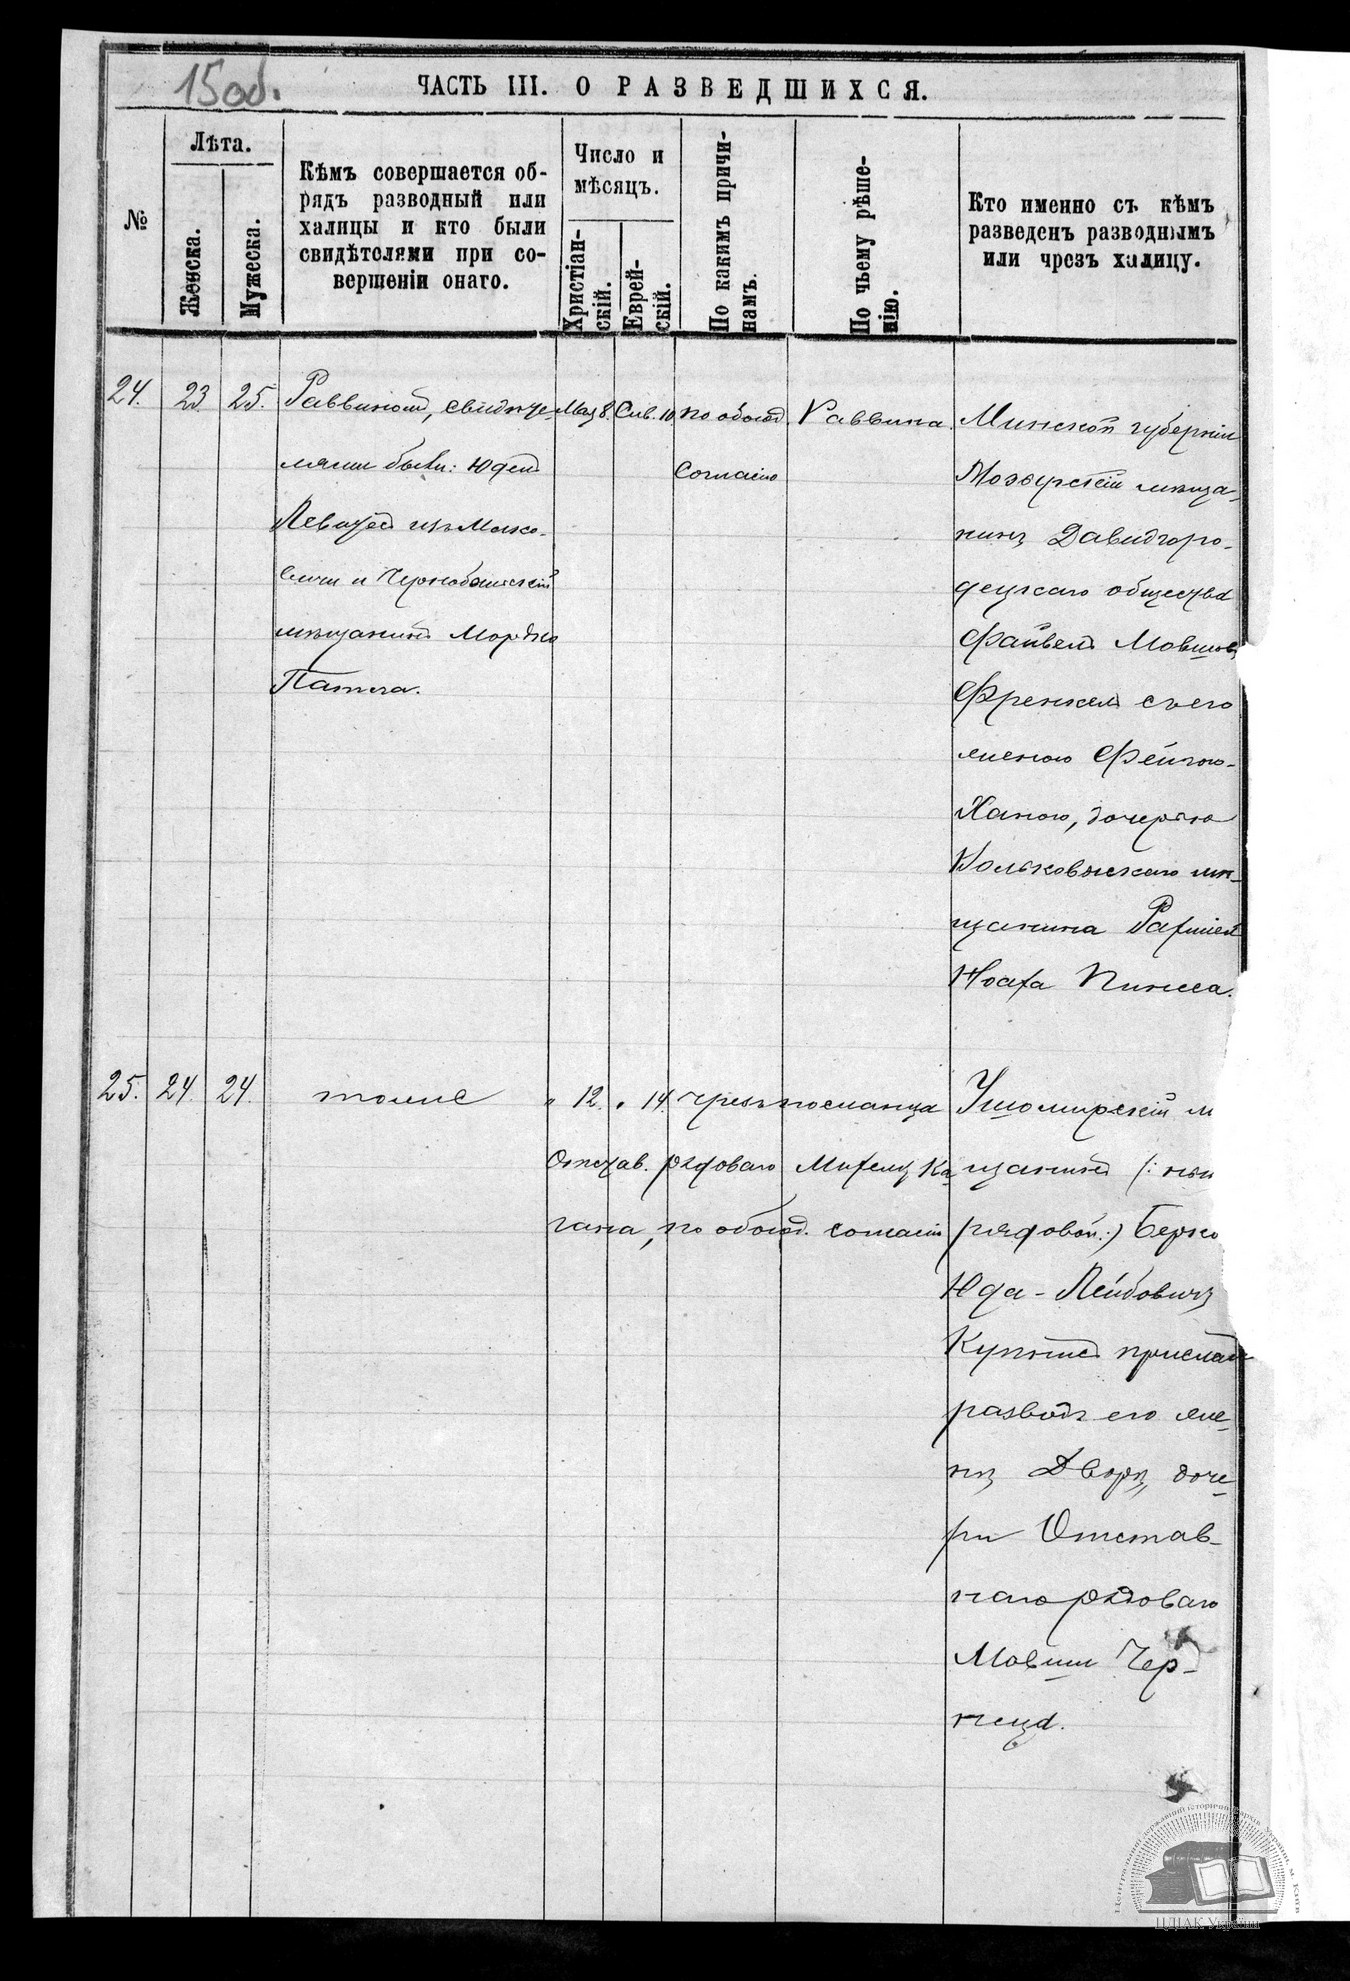 15 об.
ЧАСТЬ III. О РАЗВЕДШИХСЯ.
№
Лѣта.
Женска.
Мужеска.
Кѣмъ совершается об-
рядъ разводный или
халицы и кто были
свидѣтелями при со-
вершеніи онаго.
Число и
мѣсяцъ.
Христіан-
скій.
Еврей-
скій.
По какимъ причи-
намъ.
По чьему рѣше-
нію.
Кто именно съ кѣмъ
разведенъ разводнымъ
или чрезъ халицу.
24. 23. 25.
Раввиномъ, свидѣте-
лями были:
и Чернобыльскій
мѣщанинъ Мордко
Мая 8. Сив. 10
по обоюд.
согласію
Раввина.
Минской губерніи
Мозырскій мѣща-
нинъ Давидгоро-
децкаго общества
Файвель Мовшов
Френкель съ его
женою Фейгою-
Ханою, дочерью
мѣ-
щанина
Ноаха
25. 24. 24.
тоже
" 12. " 14.
чрезъ посланца
Отстав. рядоваго Михеля Ка-
гана, по обоюд. согласію
Ушомирскій м
щанинъ (:
рядовой:) Берко
Юда-Лейбовичъ
прислалъ
разводъ его же-
нѣ Дворѣ, доче-
ри Отстав-
наго рядоваго
Мовши Чер-
неца.
ЦДІАК України